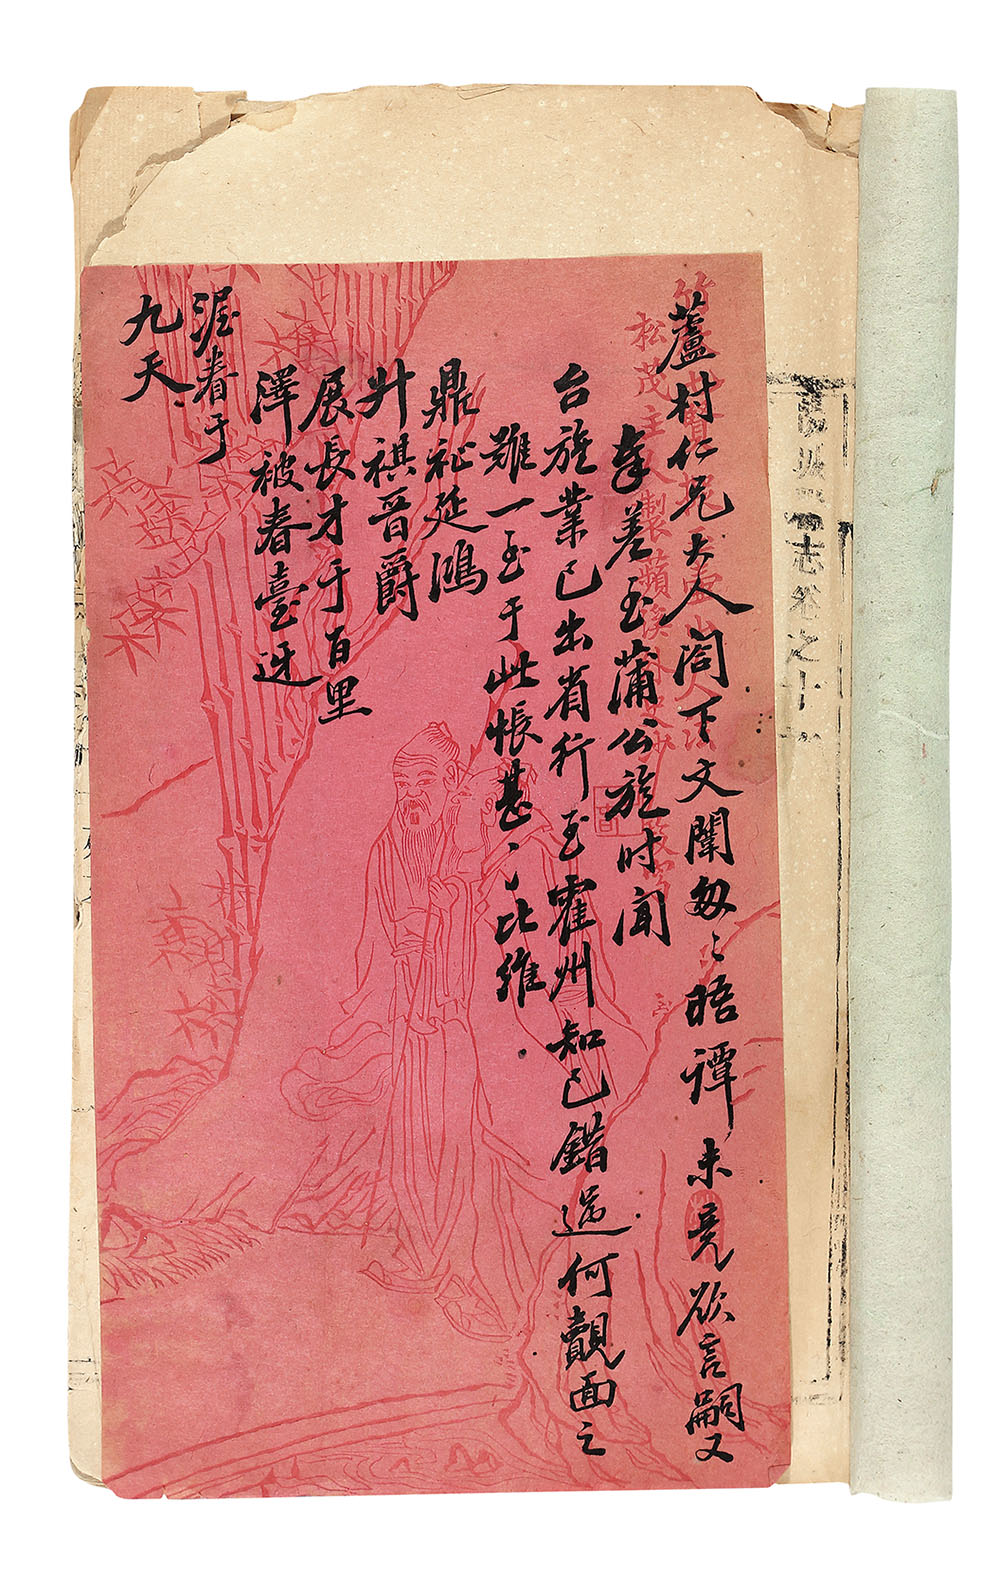 蘆村仁兄大人閤下文闈匆〻晤譚未竟欲言嗣又
奉差至蒲公旋時聞
台旌業已出省行至霍州知已錯過何覿面之
難一至于此悵甚〻比維
鼎祉延鴻
升祺晋爵
展長才于百里
澤被春臺迓
渥眷于
九天
松茂主人製
志卷之十